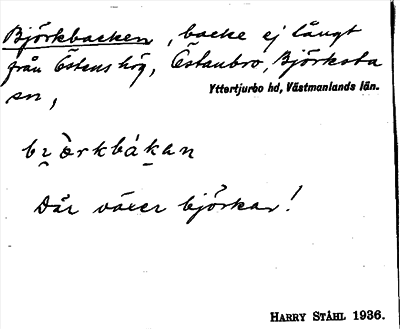 Björkbacken, backe ej långt
från Östens hög, Östanbro, Björksta
sn,
Yttertjurbo hd, Västmanlands län.
bɪ̯òrkbákan
Där växer björkar!
HARRY STÅHL 1936.